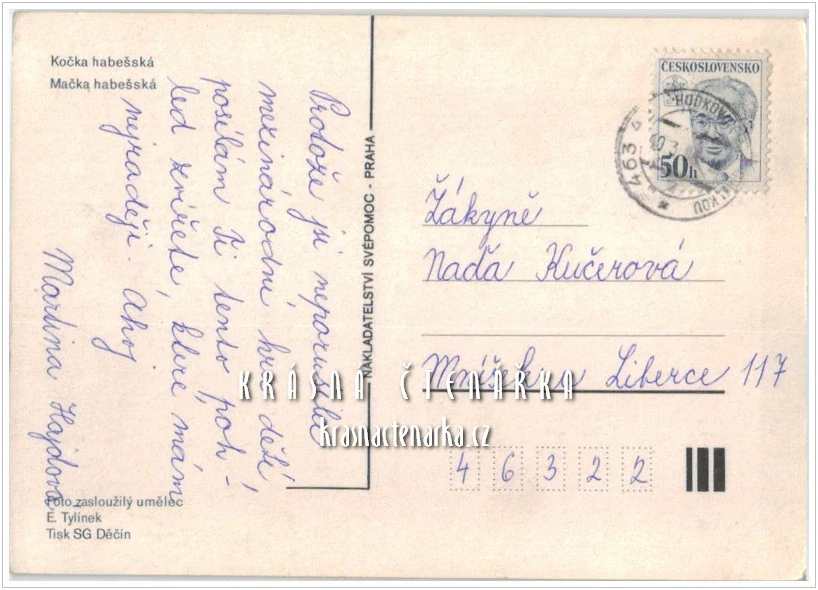 Kočka habešská
Mačka habešská
Protože jsi neporušila
mezinárodní hru dětí
posílám Ti tento poh-
led zvířete, které mám
nejraději. Ahoj
Martina Hajdová
Foto zasloužilý umělec
E. Tylínek
Tisk SG Děčín
NAKLADATELSTVÍ SVÉPOMOC - PRAHA
ČESKOSLOVENSKO
50h
463
Žákyně
Naďa Kučerová
Liberce 117
46322
KRÁSNÁ ČTENÁŘKA
krasnactenarka.cz